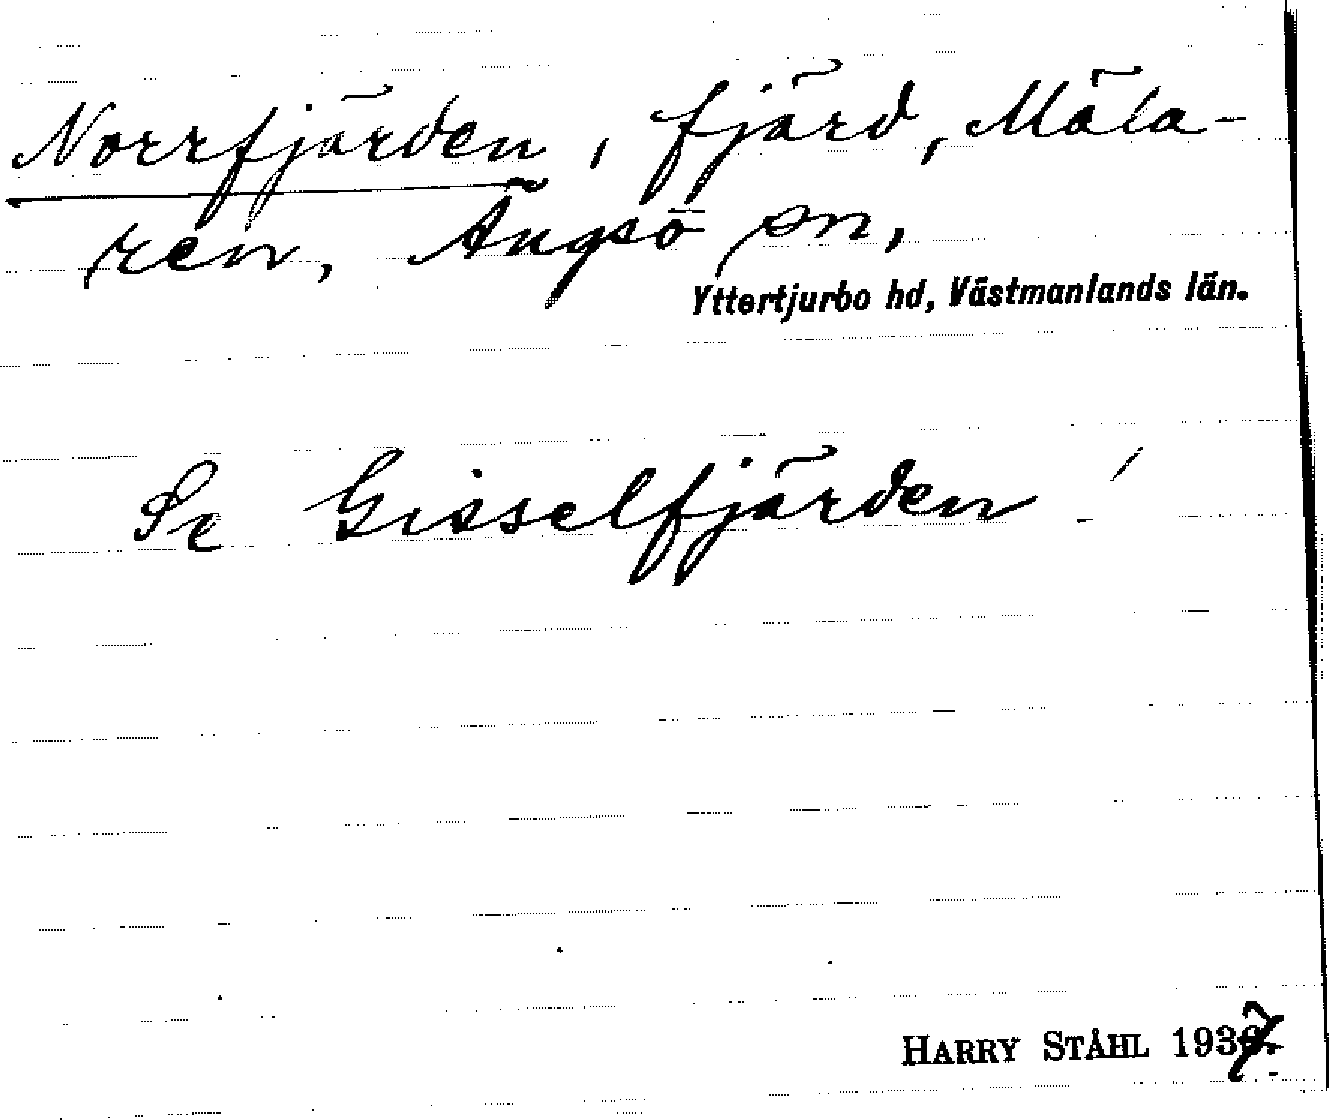 Norrfjärden, fjärd, Mäla-
ren, Ängsö sn,
Yttertjurbo hd, Västmanlands län.
Se Gisselfjärden!
HARRY STÅHL 1937.